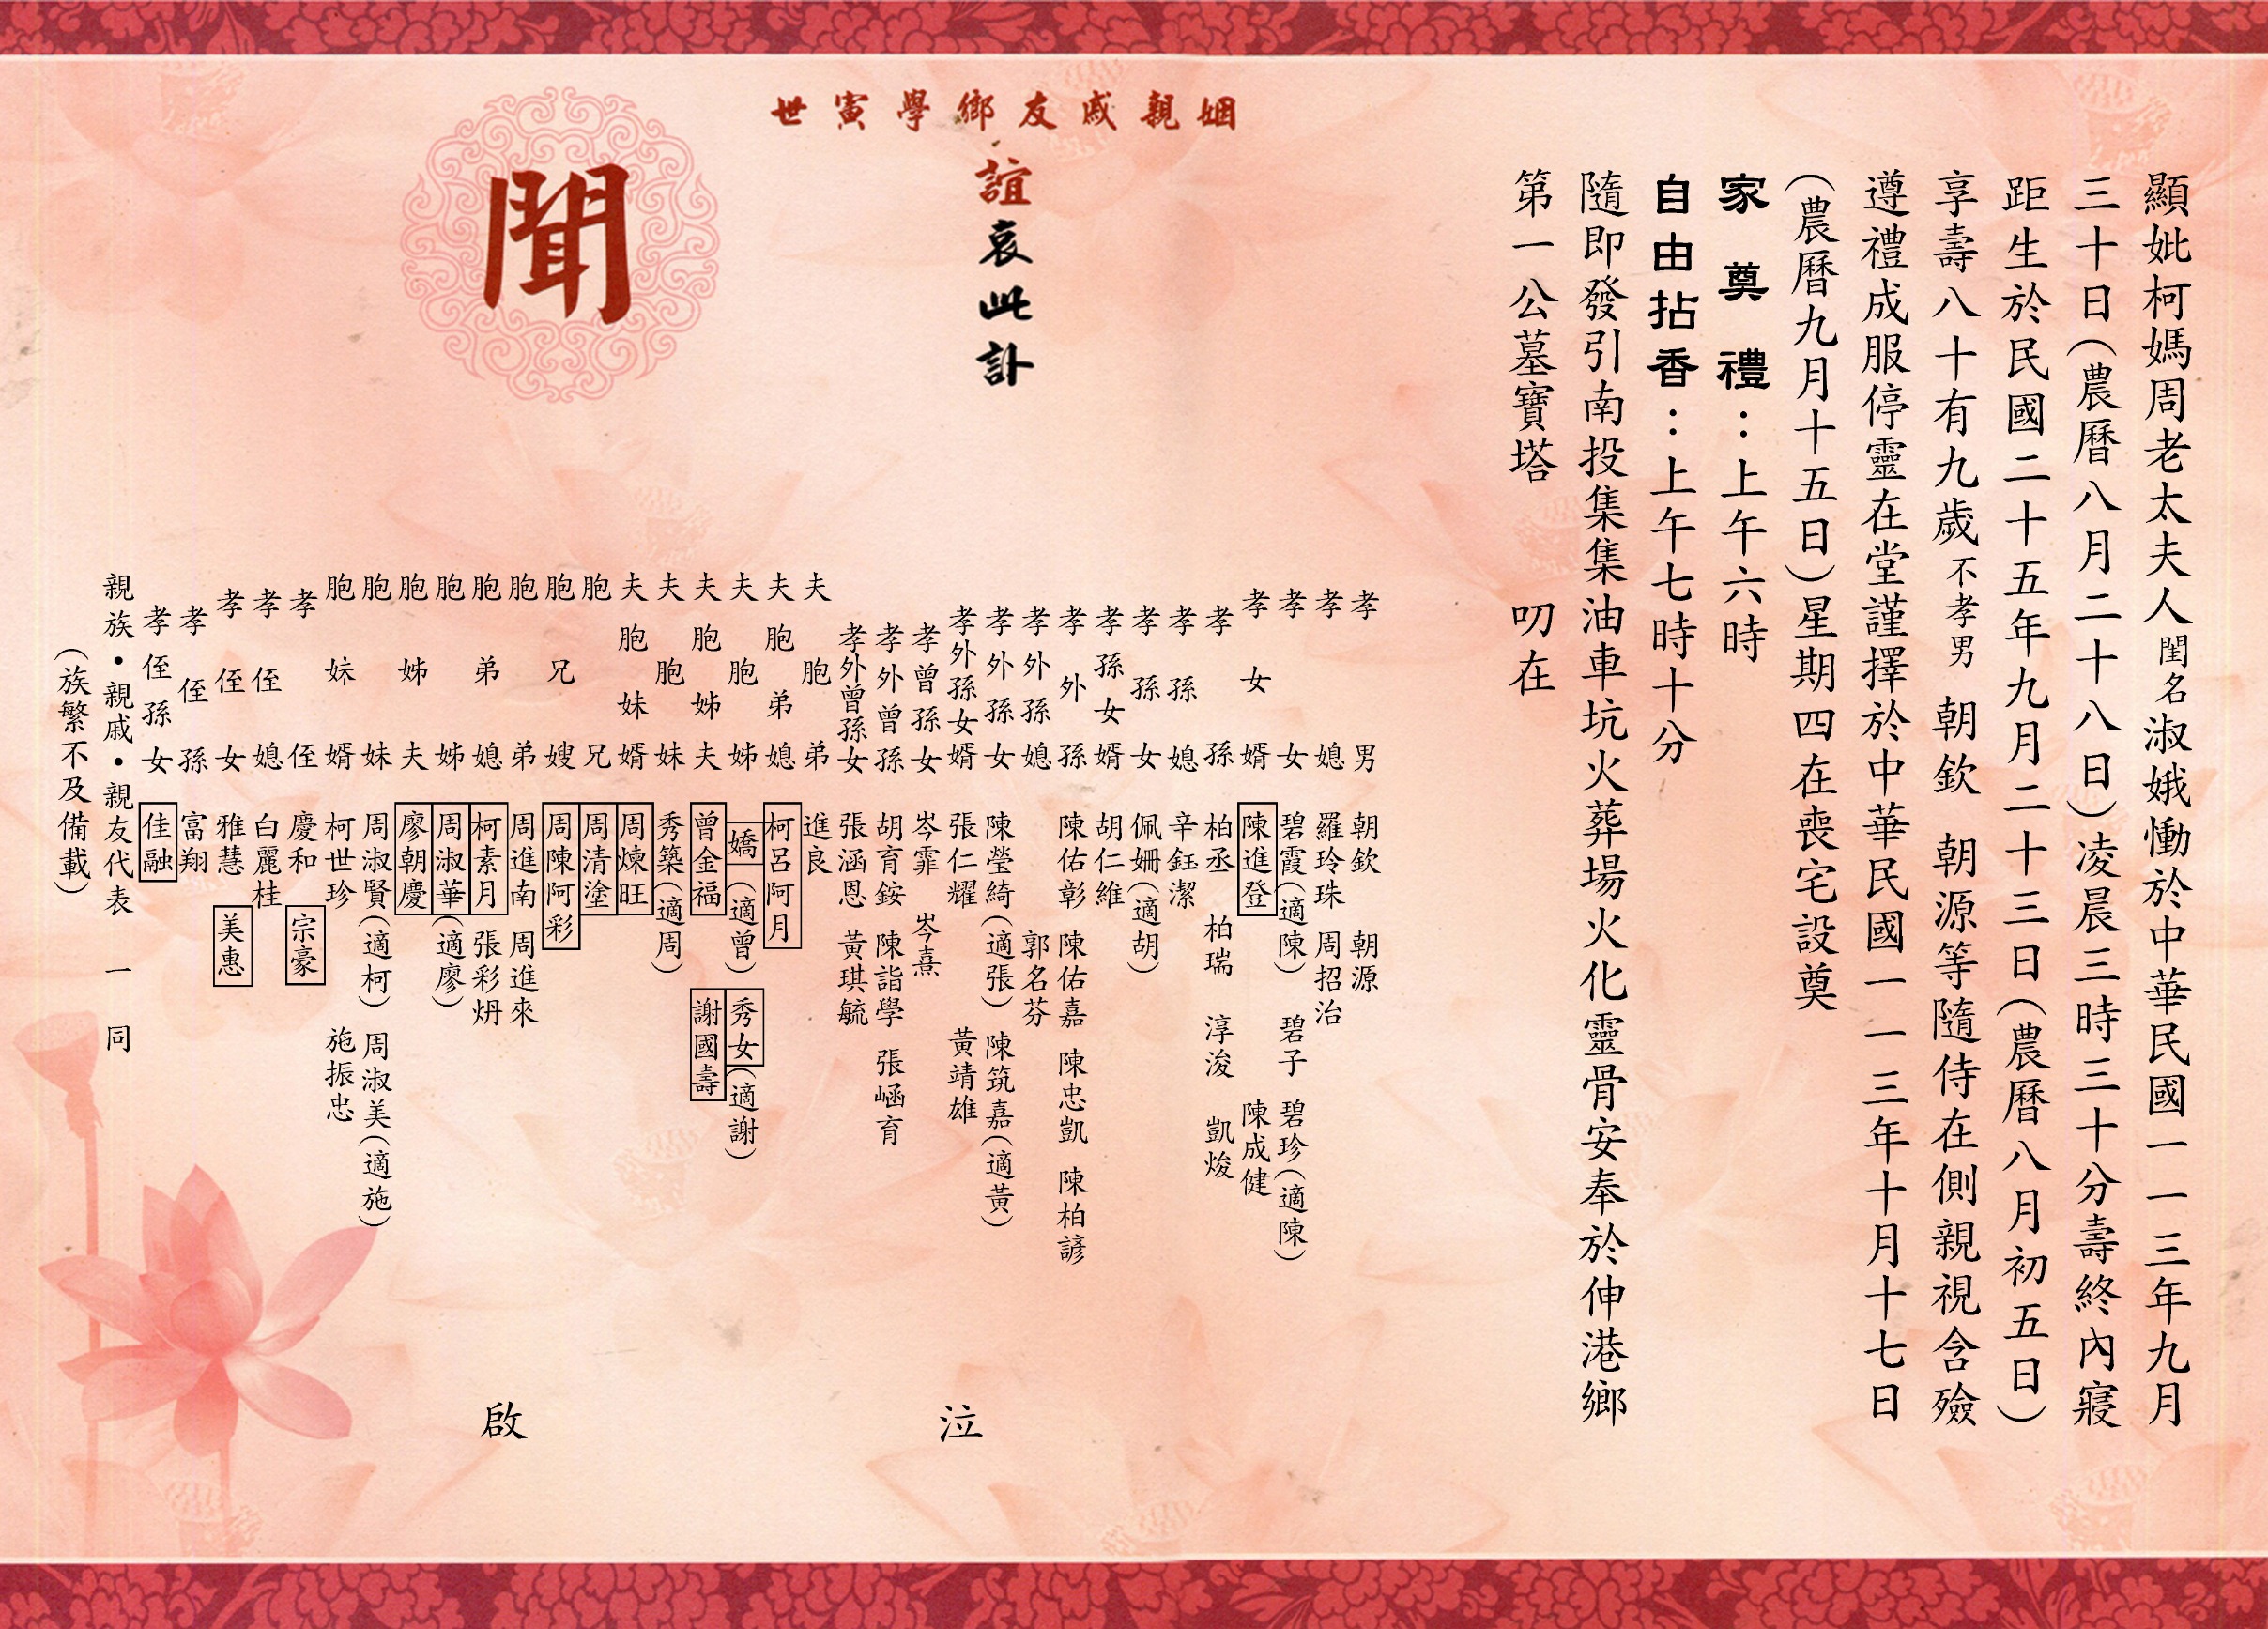 顯妣柯媽周老太夫人閨名淑娥慟於中華民國一一三年九月
三十日(農曆八月二十八日)凌晨三時三十分壽終內寢
距生於民國二十五年九月二十三日(農曆八月初五日)
享壽八十有九歲不孝男 朝欽 朝源等隨侍在側親視含殮
遵禮成服停靈在堂謹擇於中華民國一一三年十月十七日
(農曆九月十五日)星期四在喪宅設奠
家奠禮：上午六時
自由拈香：上午七時十分
隨即發引南投集集油車坑火葬場火化靈骨安奉於伸港鄉
第一公墓寶塔 叨在
姻親戚友鄉學寅世
誼哀此訃
聞
孝男 朝欽 朝源
孝媳 羅玲珠 周招治
孝女 碧霞(適陳) 碧子 碧珍(適陳)
孝女婿 陳進登 陳成健
孝孫 柏丞 柏瑞 淳浚 凱焌
孝孫媳 辛鈺潔
孝孫女 佩姍(適胡)
孝孫女婿 胡仁維
孝外孫 陳佑彰 陳佑嘉 陳忠凱 陳柏諺
孝外孫媳 郭名芬
孝外孫女 陳瑩綺(適張) 陳筑嘉(適黃)
孝外孫女婿 張仁耀 黃靖雄
孝曾孫女 岑霏 岑熹
孝外曾孫 胡育銨 陳詣學 張崡育
孝外曾孫女 張涵恩 黃琪毓
夫胞弟 進良
夫胞弟媳 柯呂阿月
夫胞姊 嬌(適曾) 秀女(適謝)
夫胞姊夫 曾金福 謝國壽
夫胞妹 秀築(適周)
夫胞妹婿 周煉旺
胞兄 周清塗
胞兄嫂 周陳阿彩
胞弟 周進南 周進來
胞弟媳 柯素月 張彩炍
胞姊 周淑華(適廖)
胞姊夫 廖朝慶
胞妹 周淑賢(適柯) 周淑美(適施)
胞妹婿 柯世珍 施振忠
孝侄 慶和 宗豪
孝侄媳 白麗桂
孝侄女 雅慧 美惠
孝侄孫 富翔
孝侄孫女 佳融
親族•親戚•親友代表 一同
(族繁不及備載)
泣啟